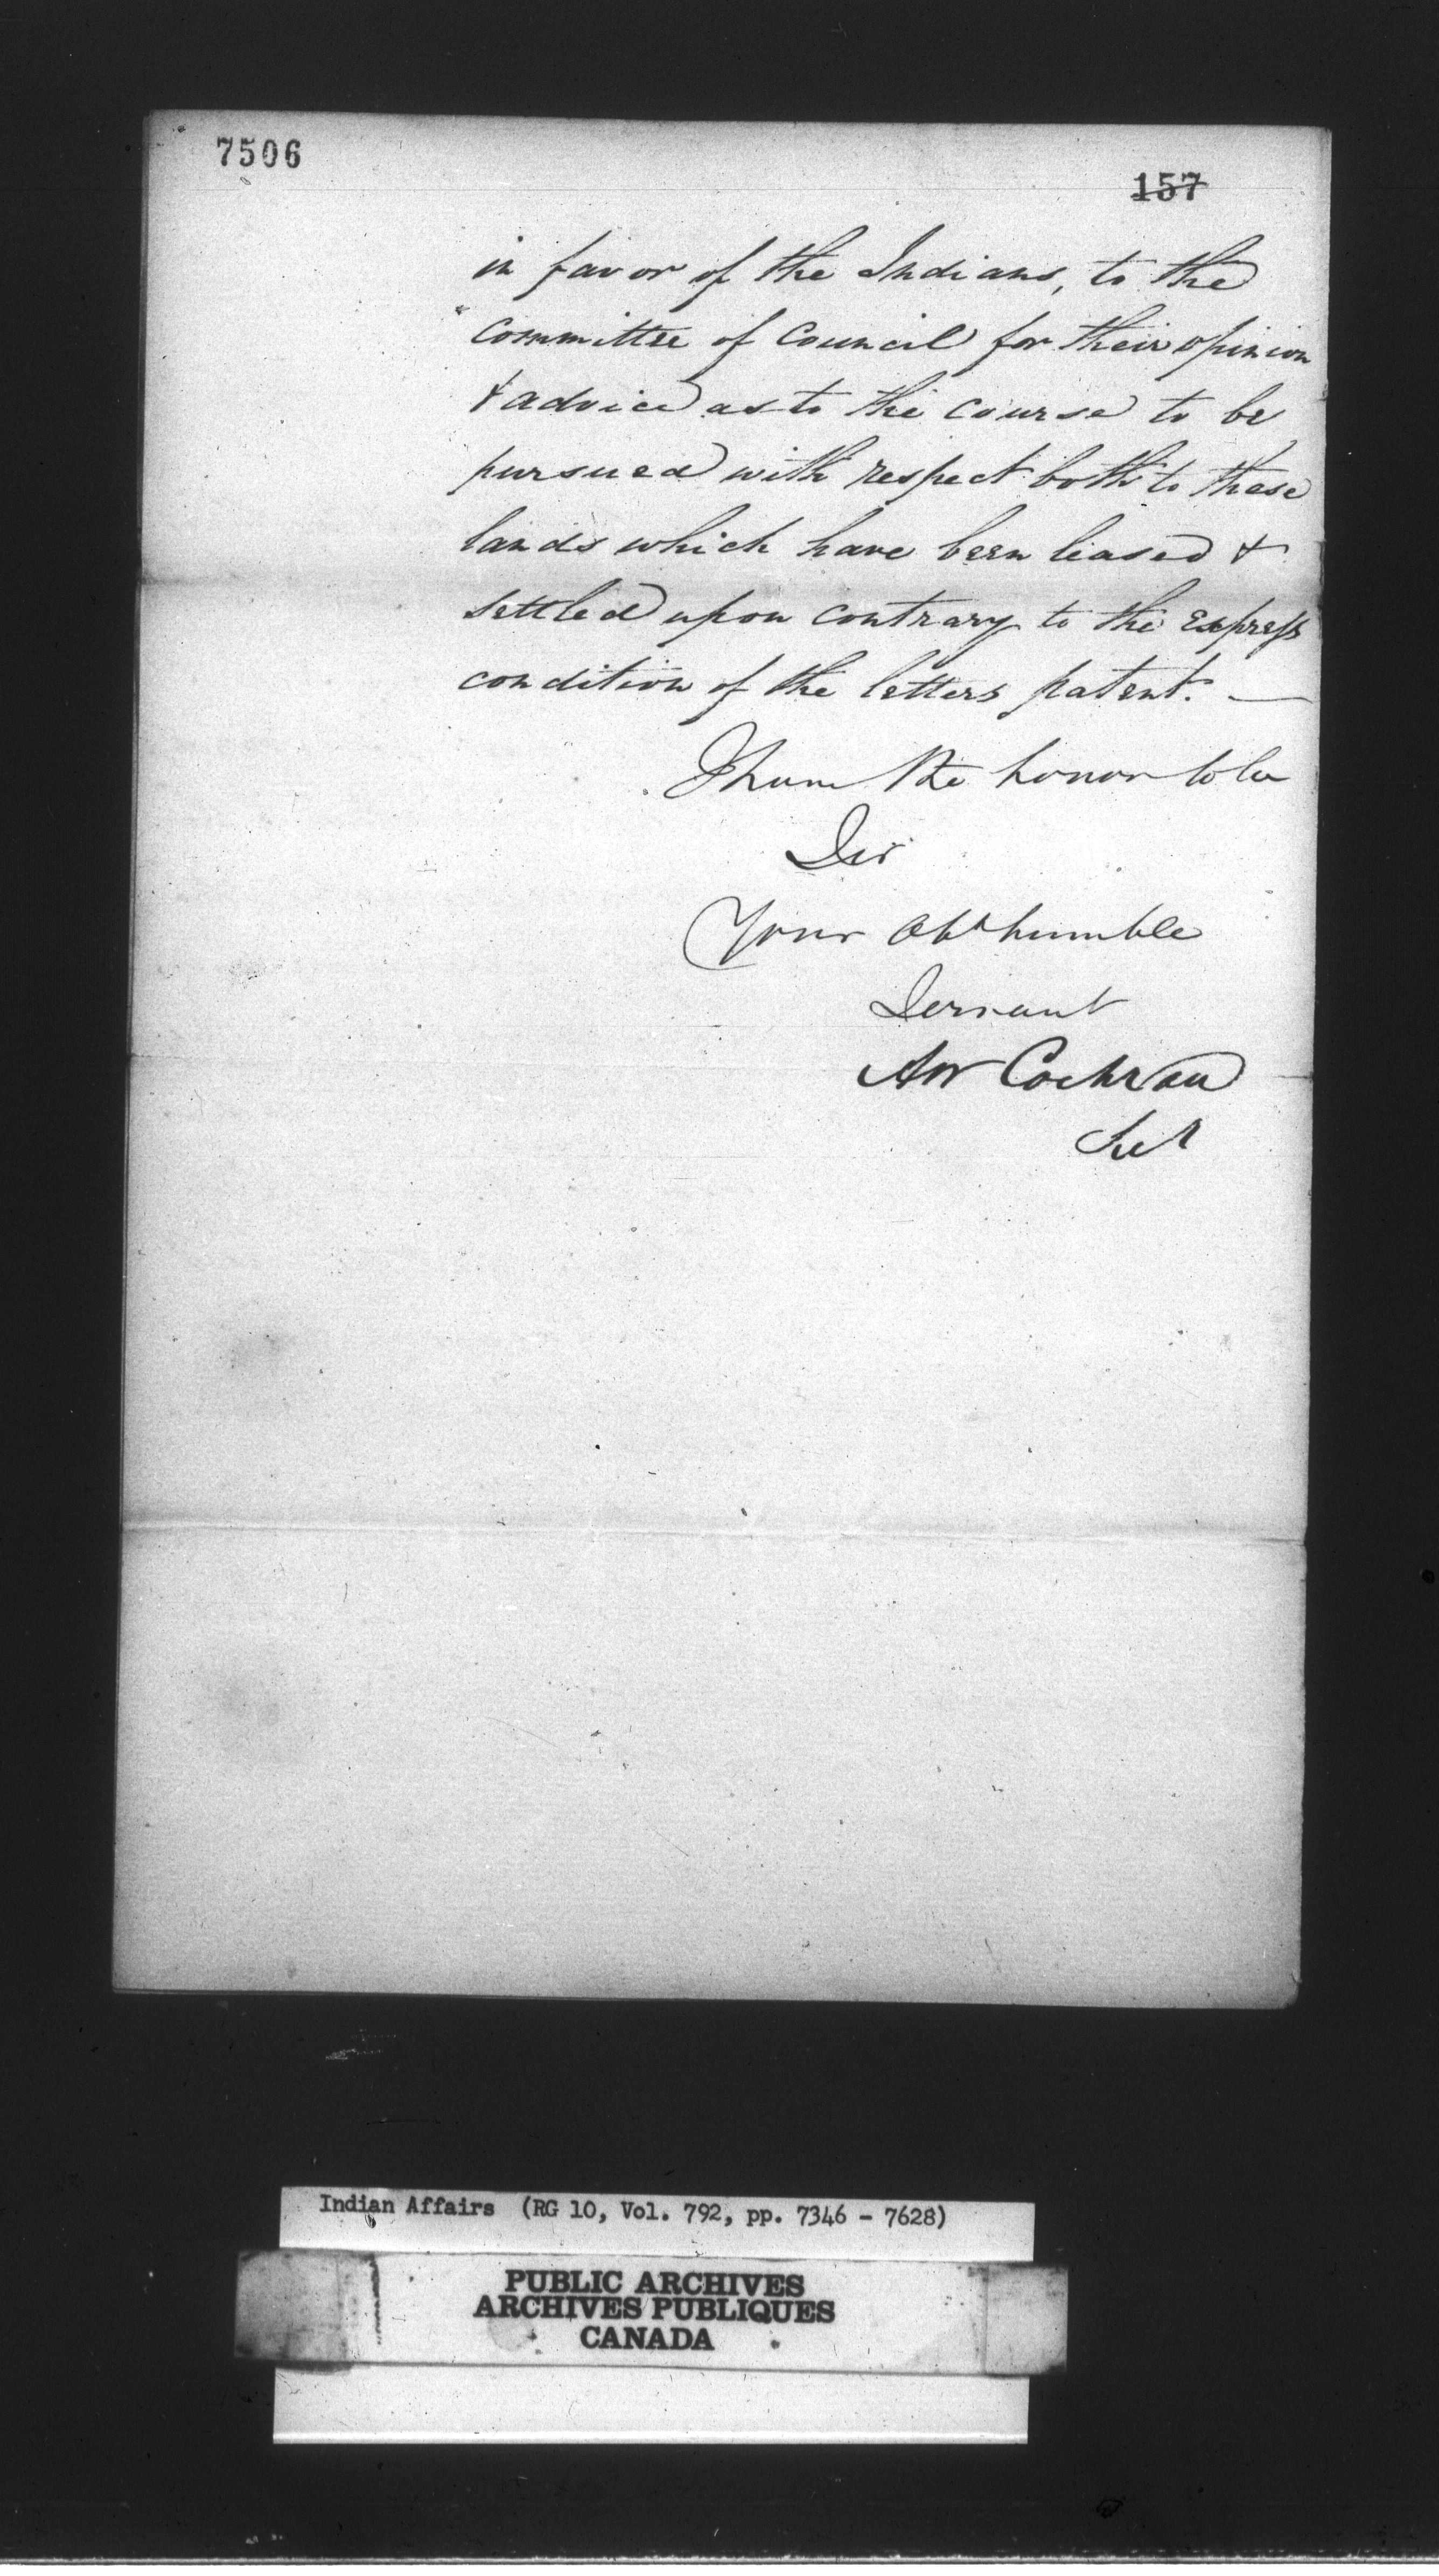 7506
157
in favor of the Indians, to the
Committee of Council for their opinion
& advice as to the course to be
pursued with respect both to those
lands which have been leased &
settled upon contrary to the express
condition of the letters patent. —
I have the honor to be
Sir
Your Obt humble
Servant
AW Cochran
Sec
Indian Affairs (RG 10, Vol. 792, pp. 7346 - 7628)
PUBLIC ARCHIVES
ARCHIVES PUBLIQUES
CANADA